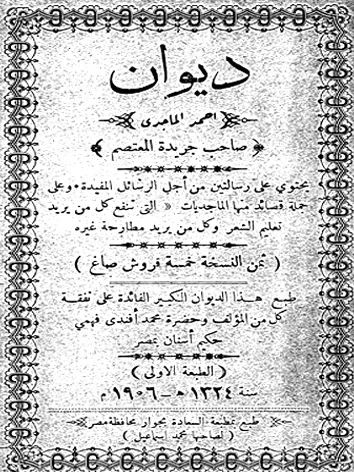 ديوان
احمد الماجدى
صاحب جريدة المعتصم
يحتوي على رسالتين من أجل الرسائل المفيدة وعلى
جملة قصائد منها الماجديات « التى تنفع كل من يريد
تعليم الشعر وكل من يريد مطارحة غيره
( ثمن النسخة خمسة قروش صاغ )
طبع هذا الديوان الكبير الفائدة على نفقة
كل من المؤلف وحضرة محمد أفندى فهمي
حكيم أسنان بمصر
( الطبعة الاولى )
سنة ١٣٢٤ هـ - ١٩٠٦ م
طبع بمطبعة السعادة بجوار محافظة مصر
( لصاحبها محمد اسماعيل )